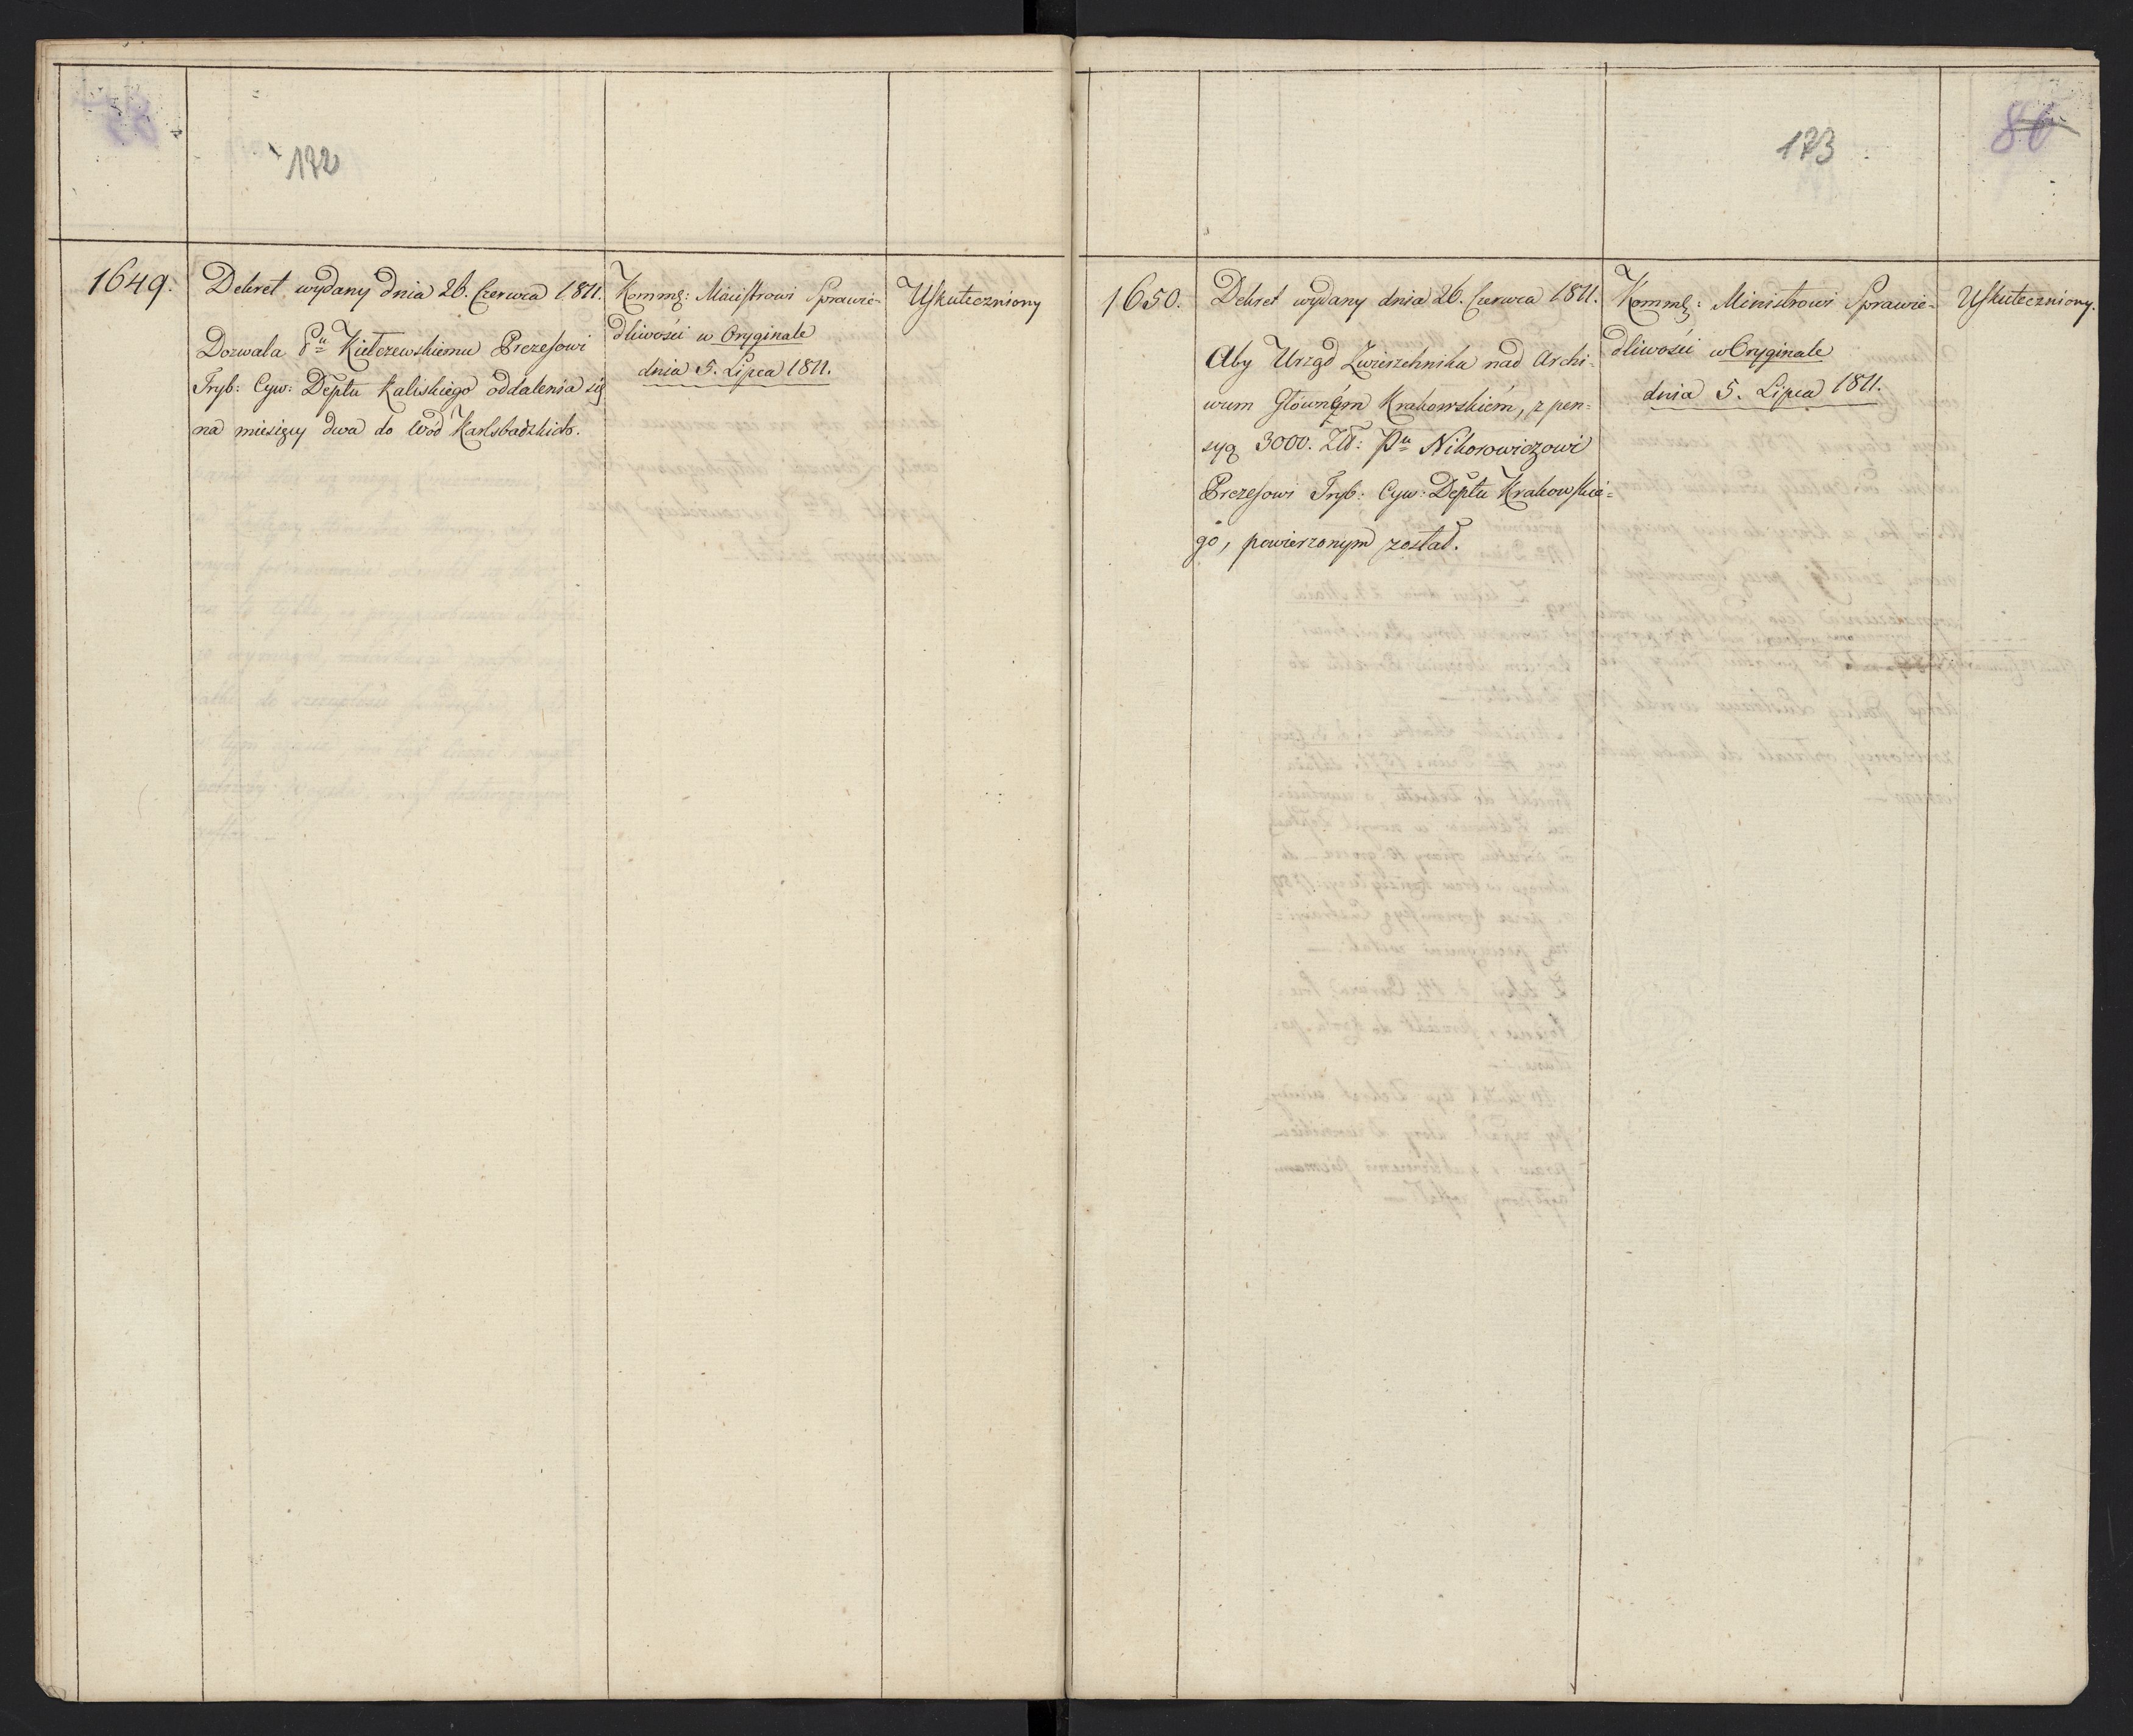 172
1649.
Dekret wydany dnia 26. Czerwca 1811.
Dozwala Pu Kiełczewskiemu Prezesowi
Tryb: Cyw: Deptu Kaliskiego oddalenia się
na miesięcy dwa do Wód Karlsbadzkich.
Kommę: Ministrowi Sprawie-
dliwości w Oryginale
dnia 5. Lipca 1811.
Uskuteczniony
173
86
1650.
Dekret wydany dnia 26. Czerwca 1811.
Aby Urząd Zwierzchnika nad Archi-
wum Głównym Krakowskiém, z pen=
syą 3000. Zł: Pu Nikorowiczowi
Prezesowi Tryb: Cyw: Deptu Krakowskie=
go, powierzonym został.
Kommę: Ministrowi Sprawie-
dliwości w Oryginale
dnia 5. Lipca 1811.
Uskuteczniony.